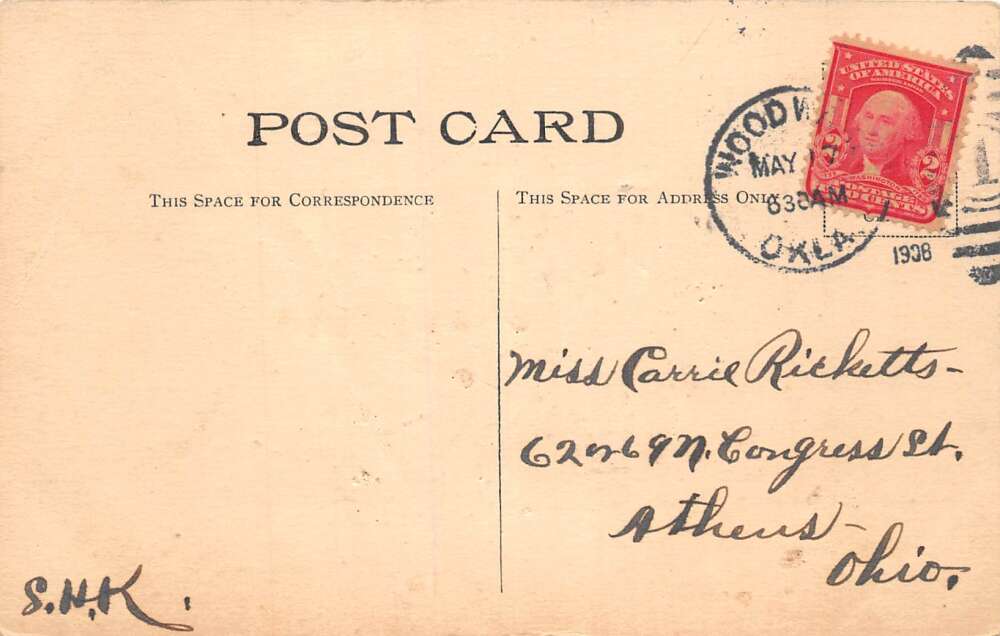 POST CARD
THIS SPACE FOR CORRESPONDENCE
THIS SPACE FOR ADDRESS ONLY
WOODW
MAY
630AM
OKLA
1908
UNITED STATES
OF AMERICA
2 2
WASHINGTON
TWO CENTS
Miss Carrie Ricketts-
62 or 69 N. Congress St.
Athens-
Ohio.
S.H.K.